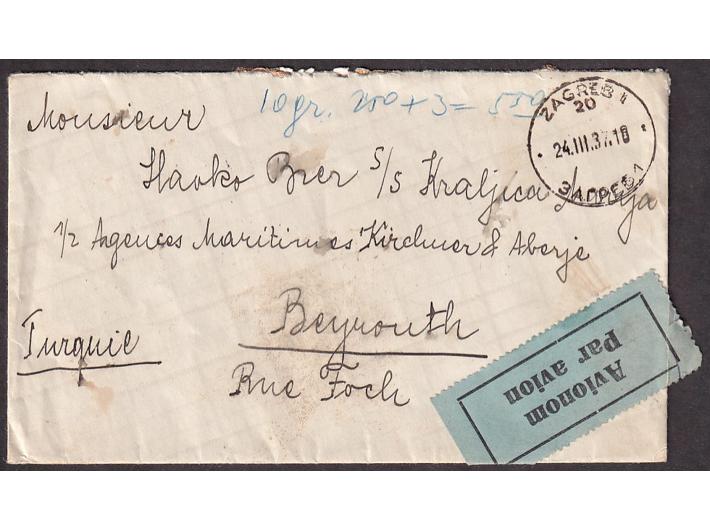 Monsieur
10 gr. 250 + 3 = 550
ZAGREB 1
20
24.III.37.18
ЗАГРЕБ 1
Slavko Bier S/S Kraljica
Agences Maritimes Kirchner & Aberje
Beyrouth
Turquie
Rue Foch
Avionom
Par avion